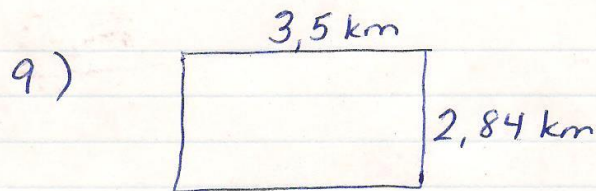 3,5 km
9)
2,84 km